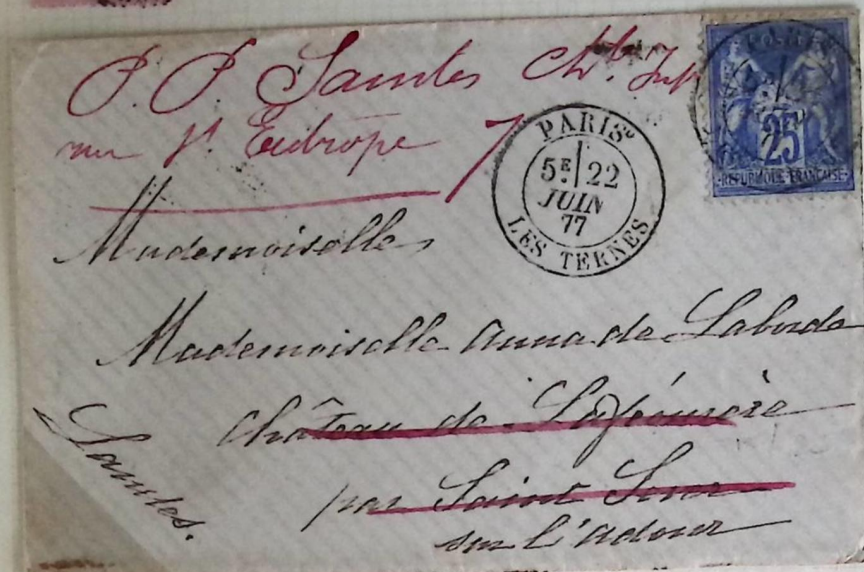 P. P. Saintes Chte Infre
rue St. Eutrope 7
PARIS
5E 22
JUIN
77
LES TERNES
25
REPUBLIQUE FRANCAISE
Mademoiselle
Mademoiselle Anna de Laborde
Château de
par Saint Sever
sur l'adour
Landes.